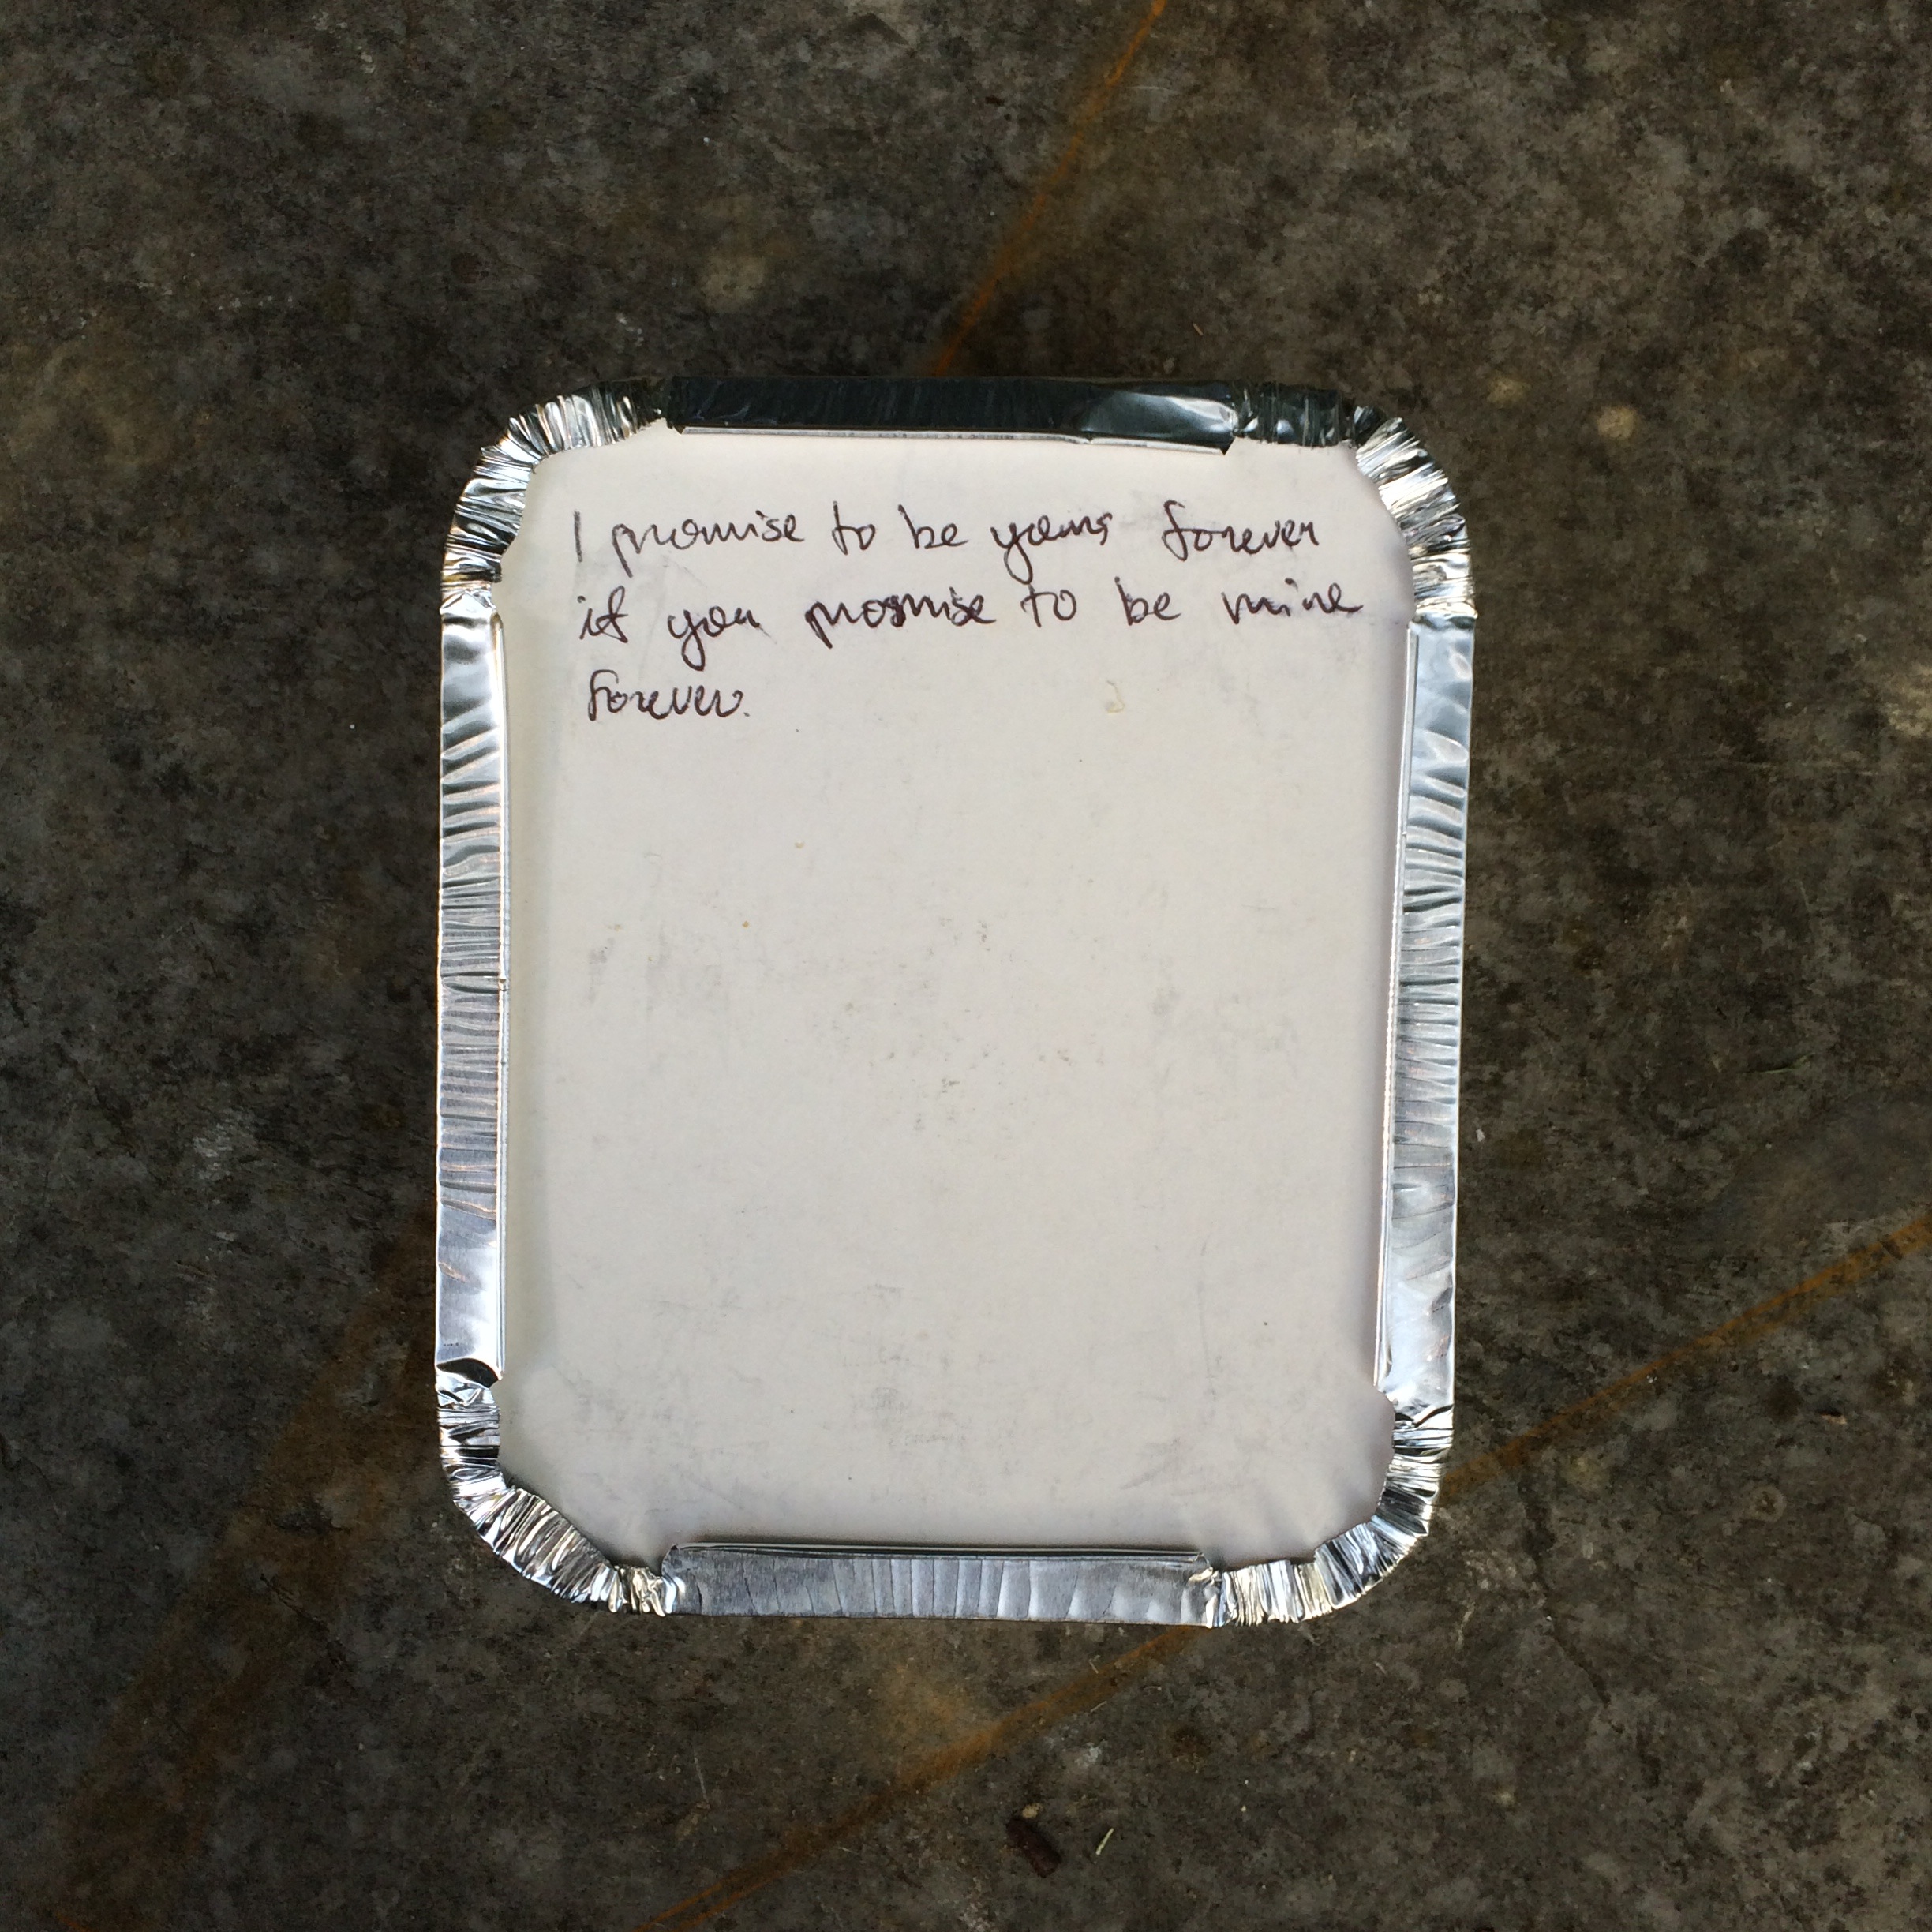 I promise to be yours forever
if you promise to be mine
forever.